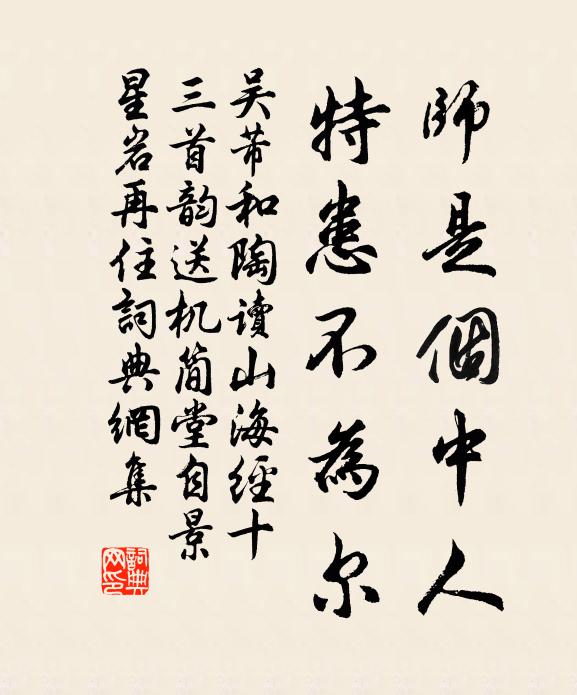 師是個中人
特患不為尔
吴芾和陶讀山海經十
三首韵送机简堂自景
星岩再住詞典網集
詞典网印